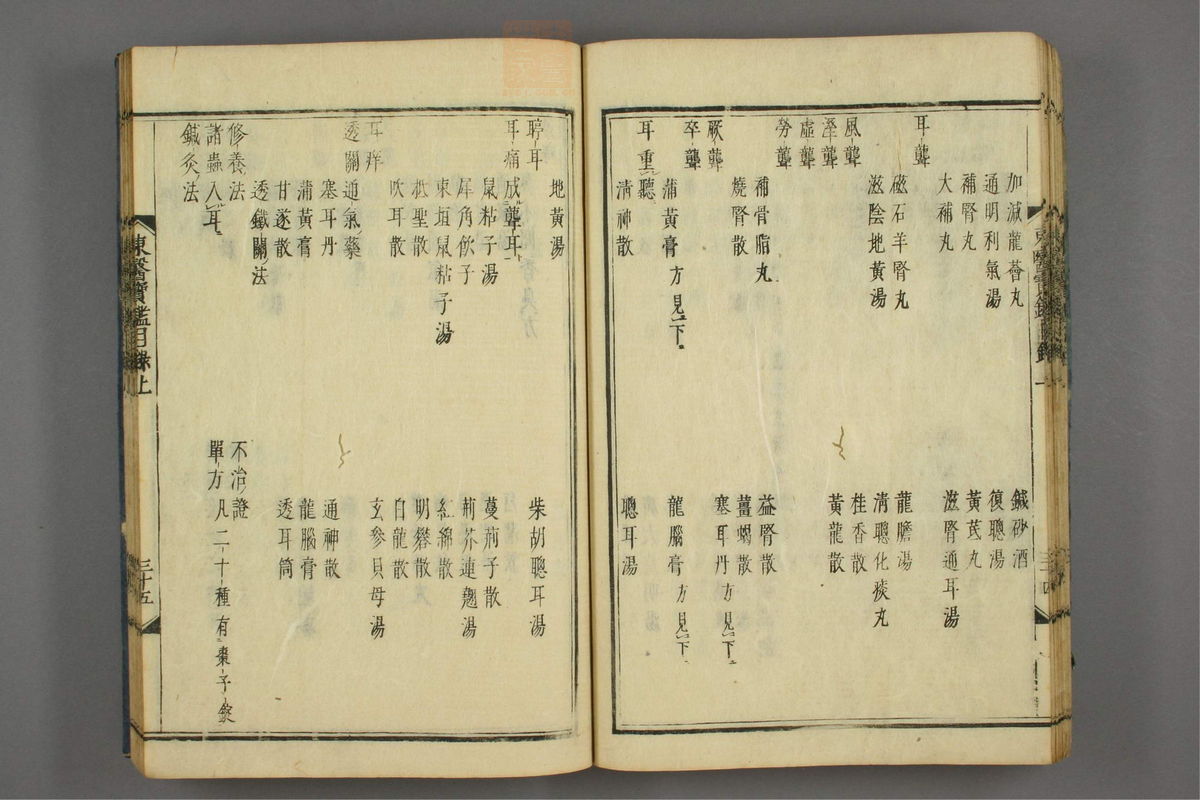 加減龍薈丸
鍼砂酒
通明利氣湯
復聰湯
補腎丸
黃芪丸
大補丸
滋腎通耳湯
耳聾
磁石羊腎丸
龍膽湯
滋陰地黃湯
清聰化痰丸
風聾
桂香散
溼聾
黃龍散
虛聾
勞聾
補骨脂丸
益腎散
燒腎散
薑蝎散
厥聾
塞耳丹方見下
卒聾
蒲黃膏方見下
龍腦膏方見下
耳重聽
清神散
聰耳湯
地黃湯
柴胡聰耳湯
聤耳
耳痛成聾耳
鼠粘子湯
蔓荊子散
犀角飲子
荊芥連翹湯
東垣鼠粘子湯
紅綿散
抵聖散
明礬散
吹耳散
白龍散
耳痒
玄參貝母湯
透關通氣藥
塞耳丹
通神散
蒲黃膏
龍腦膏
甘遂散
透耳筒
透鐵關法
修養法
不治證
諸蟲入耳
單方凡二十種有棗子錠
鍼灸法
東醫寶鑑目錄上
三十五